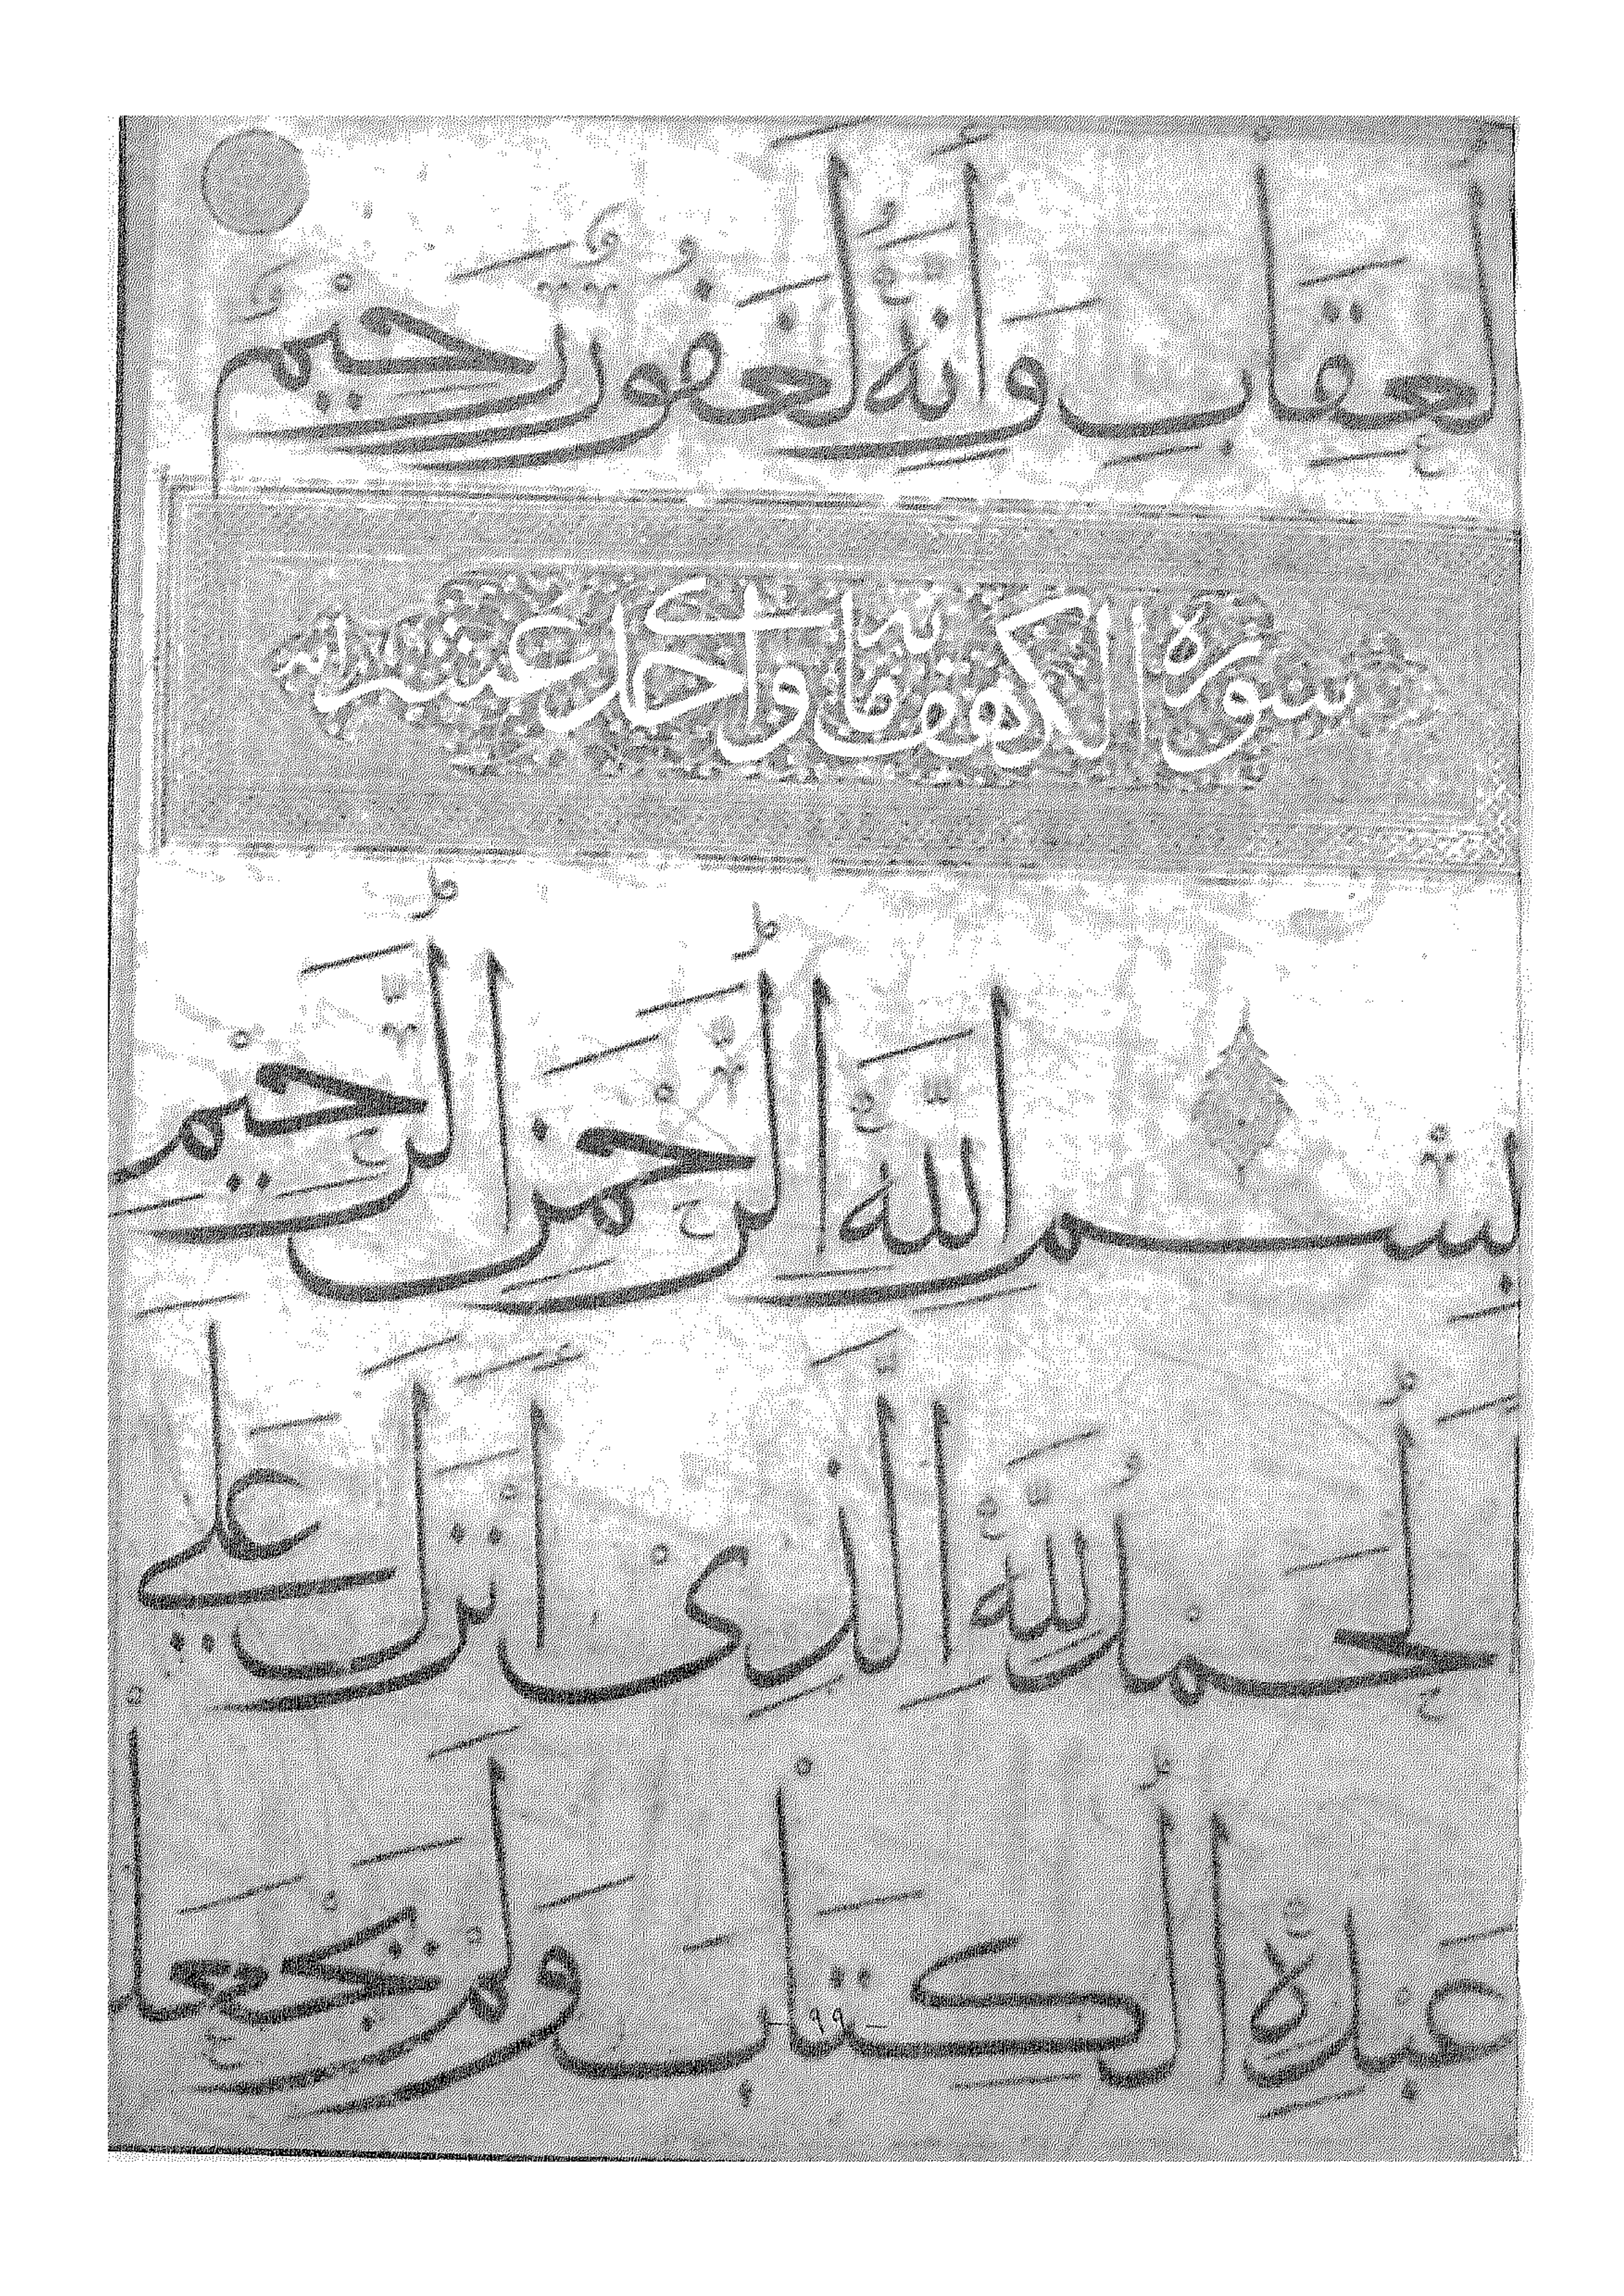 لعقاب وانه لغفور رحيم
سورة الكهف مائة واحدى عشر اية
بسم الله الرحمن الرحيم
لحمد لله الذى انزل على
عبده الكتاب ولم يجعل
- ٩٩ -